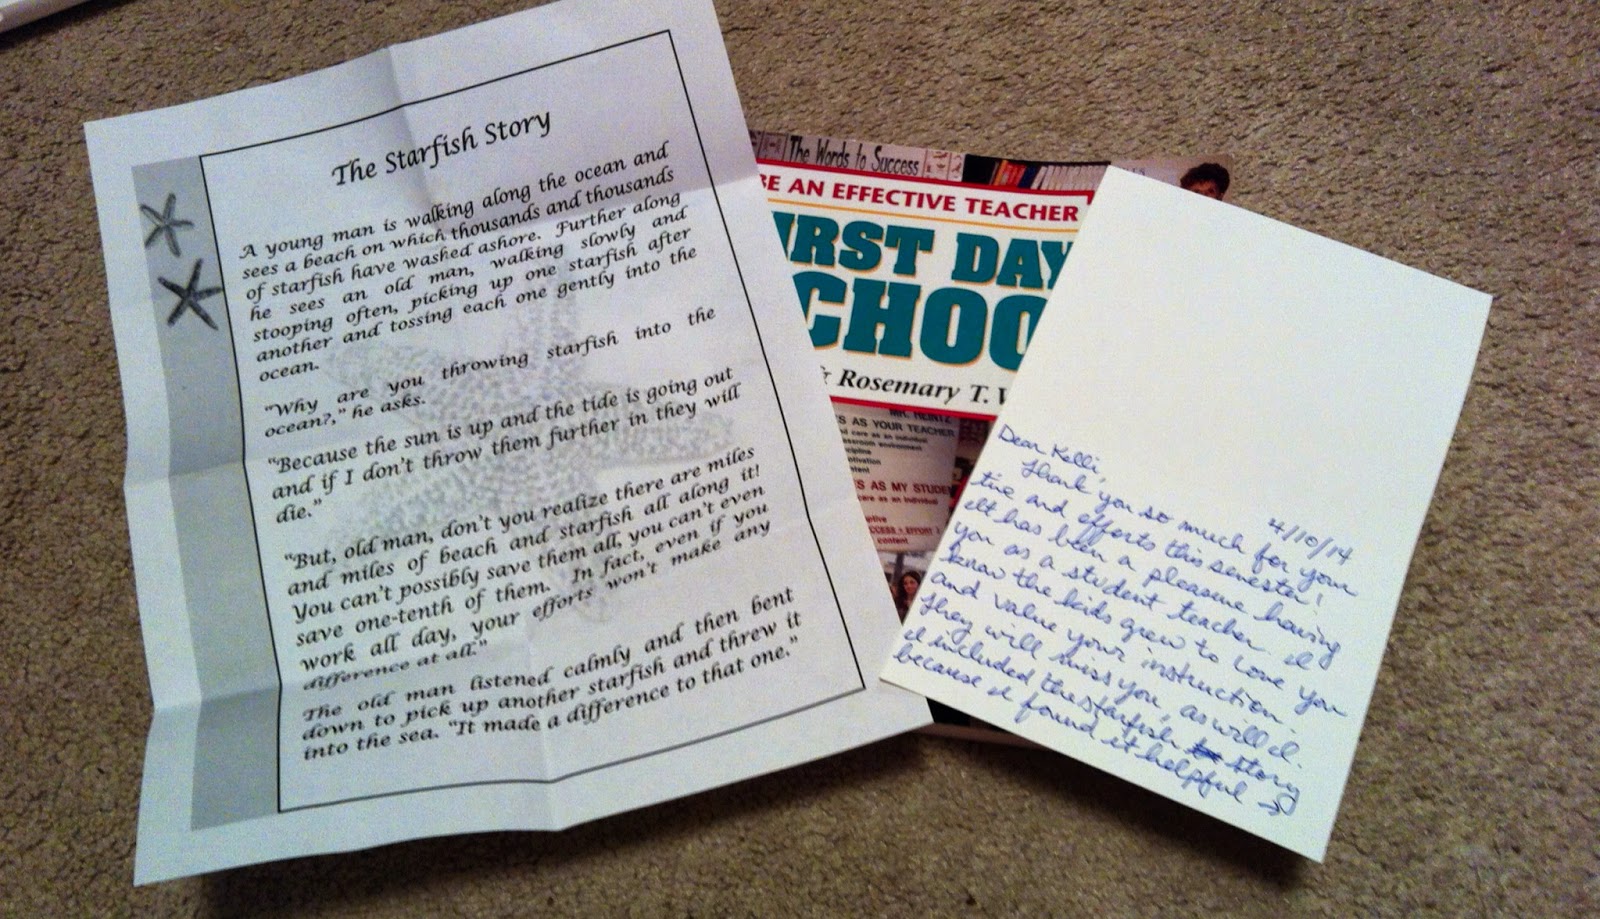 The Starfish Story
A young man is walking along the ocean and
sees a beach on which thousands and thousands
of starfish have washed ashore. Further along
he sees an old man, walking slowly and
stooping often, picking up one starfish after
another and tossing each one gently into the
ocean.
“Why are you throwing starfish into the
ocean?,” he asks.
“Because the sun is up and the tide is going out
and if I don’t throw them further in they will
die.”
“But, old man, don’t you realize there are miles
and miles of beach and starfish all along it!
You can’t possibly save them all, you can’t even
save one-tenth of them. In fact, even if you
work all day, your efforts won’t make any
difference at all.”
The old man listened calmly and then bent
down to pick up another starfish and threw it
into the sea. “It made a difference to that one.”
The Words to Success
BE AN EFFECTIVE TEACHER
IRST DAY
CHOO
& Rosemary T. W
MR. HEINTZ
ES AS YOUR TEACHER
and care as an individual
assroom environment
cipline
otivation
tent
ES AS MY STUDE
care as an individual
ptive
CCESS = EFFORT
content
4/10/14
Dear Kelli,
Thank you so much for your
time and efforts this semester!
It has been a pleasure having
you as a student teacher. I
know the kids grew to love you
and value your instruction.
They will miss you, as will I.
I included the starfish story
because I found it helpful →